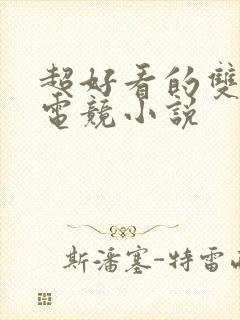 超好看的雙
電競小說
斯潘塞-特雷西